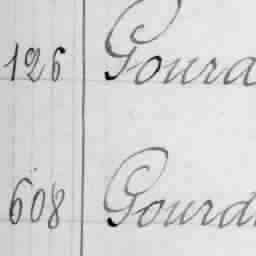 126 Goura
608 Gourd